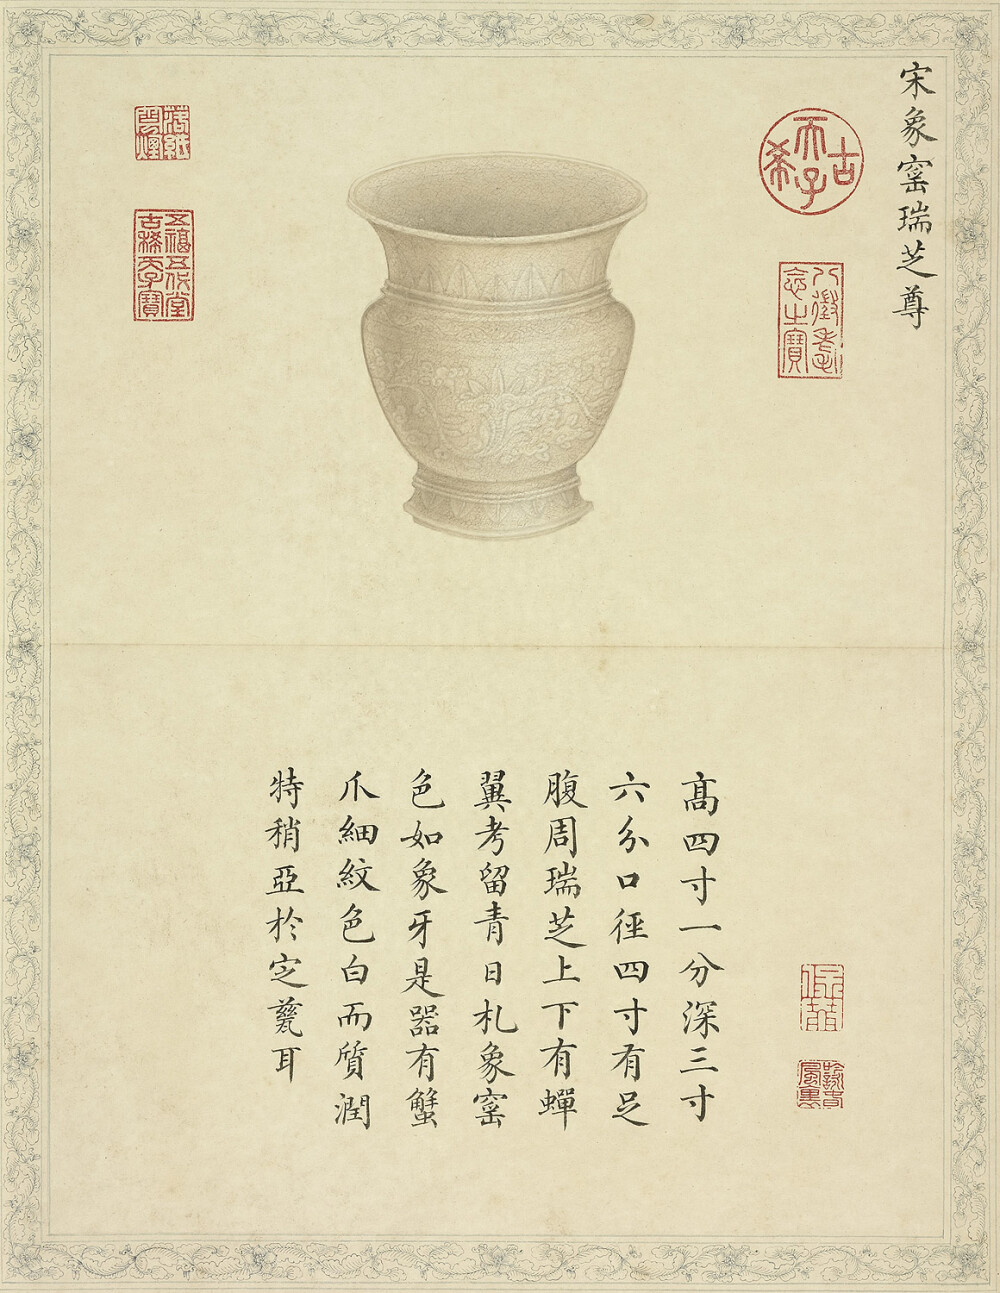 宋象窰瑞芝尊
古希天子
八徵耄念之寶
落紙雲煙
五福五代堂古稀天子寶
高四寸一分深三寸
六分口徑四寸有足
腹周瑞芝上下有蟬
翼考留青日札象窰
色如象牙是器有蟹
爪細紋色白而質潤
特稍亞於定甆耳